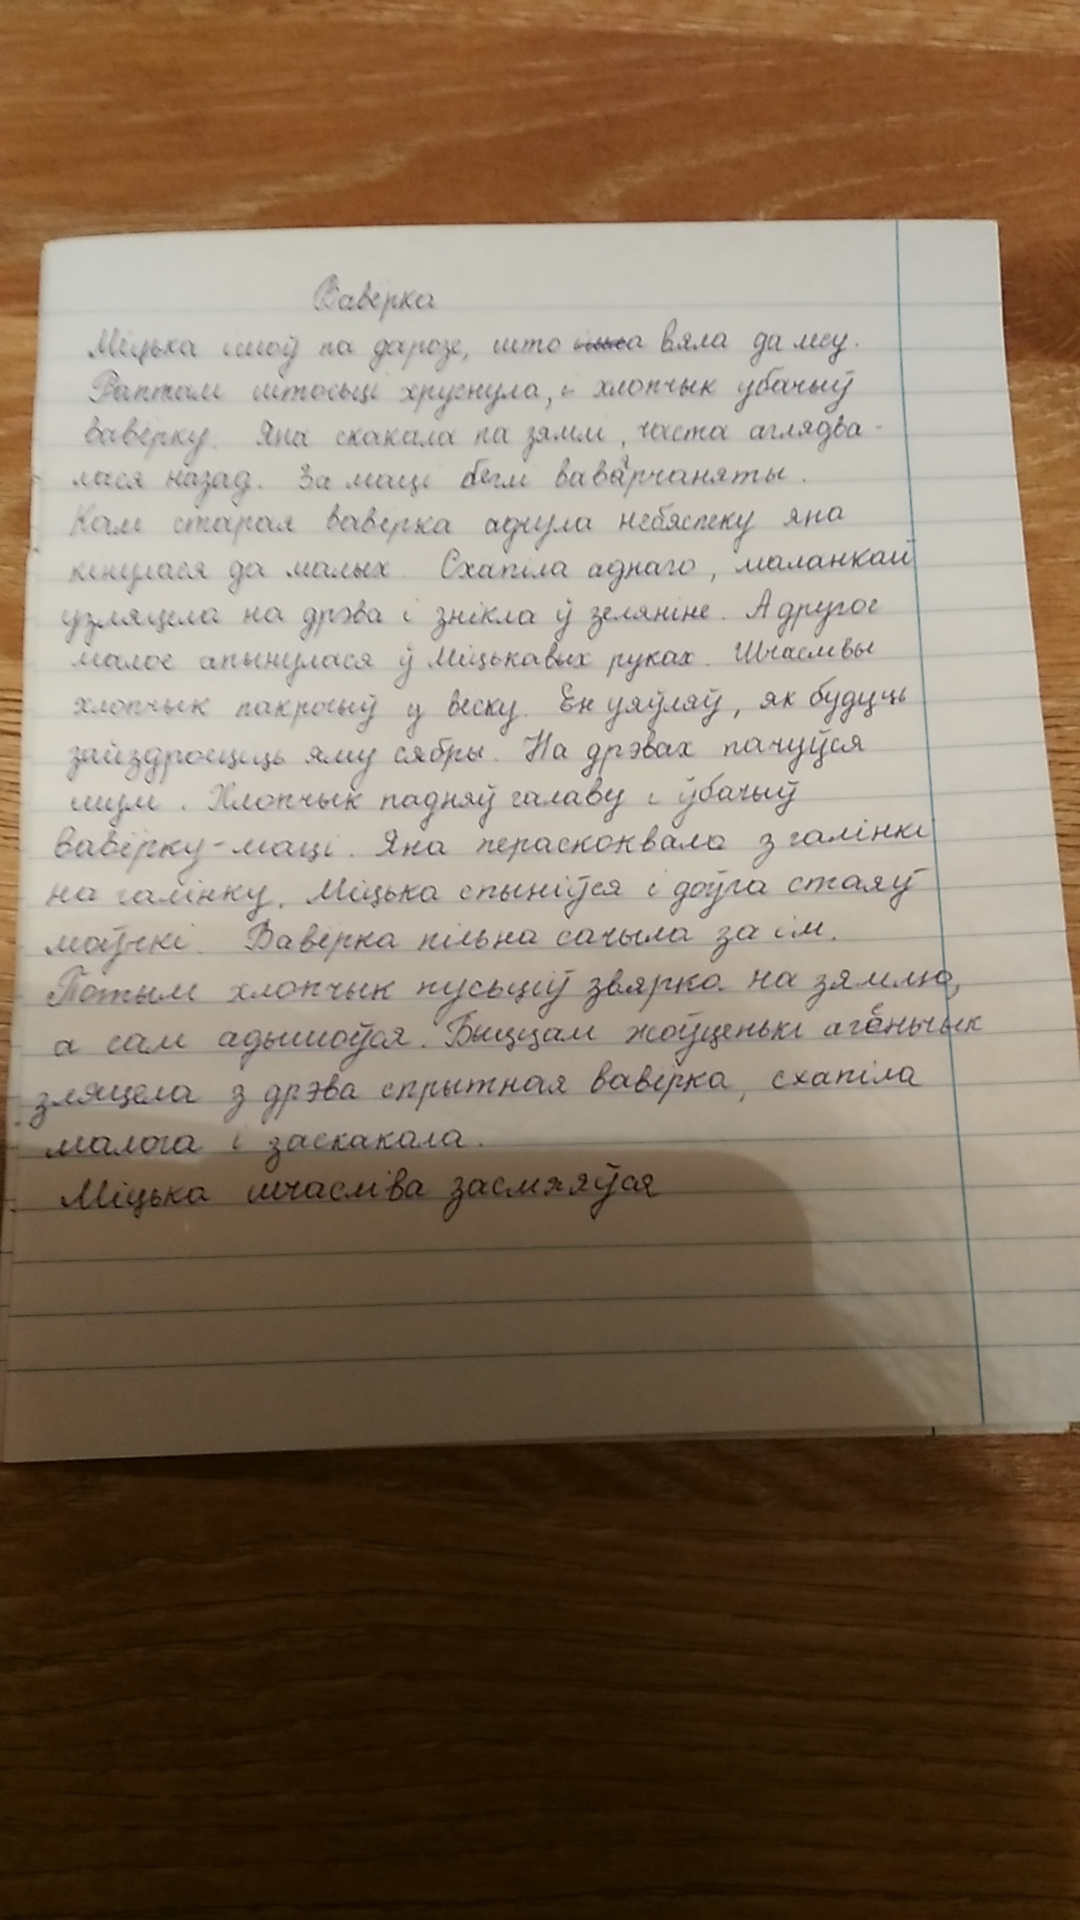 Вавёрка
Міцька ішоў па дарозе, што вяла да лесу.
Раптам штосьці хруснула, і хлопчык убачыў
вавёрку. Яна скакала па зямлі, часта аглядва-
лася назад. За маці беглі вавярчаняты.
Калі старая вавёрка адчула небяспеку яна
кінулася да малых. Схапіла аднаго, маланкай
узляцела на дрэва і знікла ў зеляніне. А другое
малое апынулася ў Міцькавых руках. Шчаслівы
хлопчык пакрочыў у вёску. Ён уяўляў, як будуць
зайздросціць яму сябры. На дрэвах пачуўся
шум. Хлопчык падняў галаву і ўбачыў
вавёрку-маці. Яна пераскоквала з галінкі
на галінку. Міцька спыніўся і доўга стаяў
моўчкі. Вавёрка пільна сачыла за ім.
Потым хлопчык пусьціў звярка на зямлю,
а сам адышоўся. Быццам жоўценькі агеньчык
зляцела з дрэва спрытная вавёрка, схапіла
малога і заскакала.
Міцька шчасліва засмяяўся